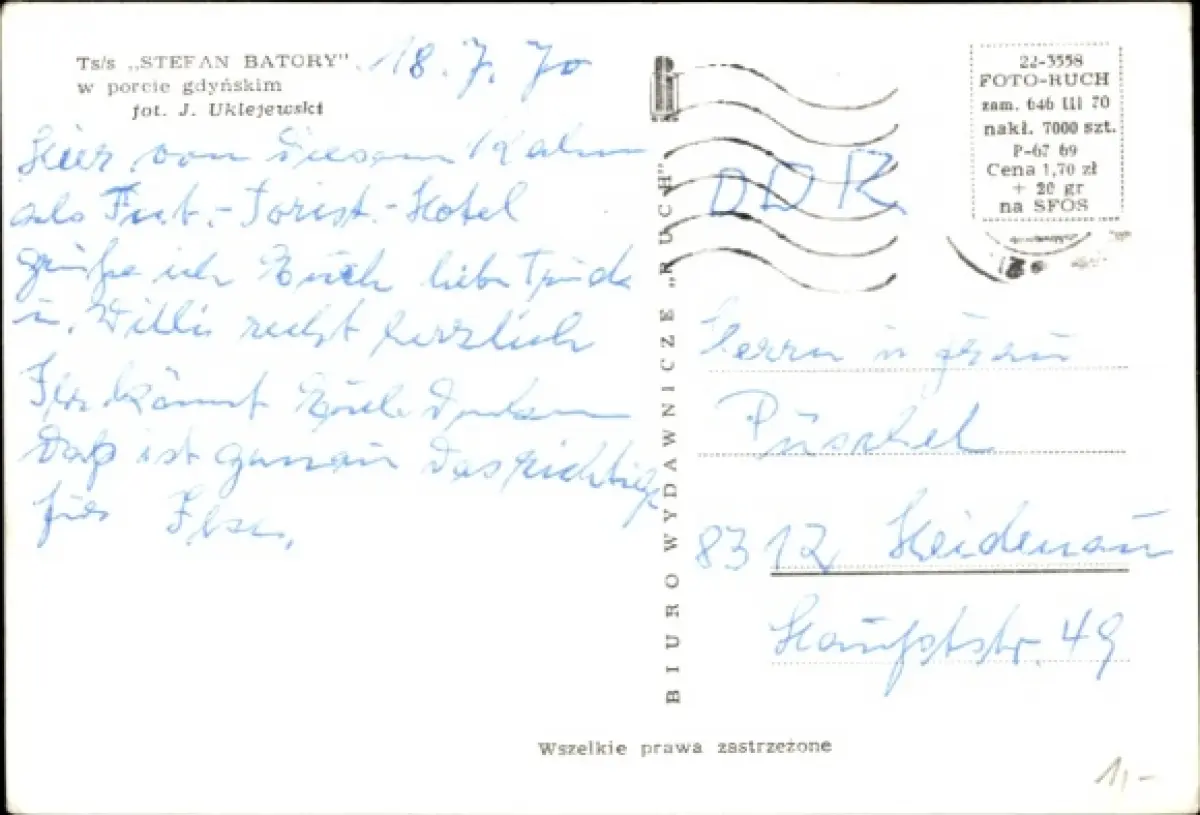 Ts/s „STEFAN BATORY"
w porcie gdyńskim
fot. J. Uklejewski
18.7.70
Hier von diesem Kahn
als Int.-Torist-Hotel
grüße ich Euch liebe Trude
u. Willi recht herzlich
Ihr könnt Euch Denken
Daß ist genau Das richtige
für Ilse.
BIURO WYDAWNICZE „RUCH"
22-3558
FOTO-RUCH
zam. 646 III 70
nakł. 7000 szt.
P-67 69
Cena 1,70 zł
+ 20 gr
na SFOS
DDR
Herrn u Frau
Püschel
8312 Heidenau
Hauptstr. 49
Wszelkie prawa zastrzeżone
1,-